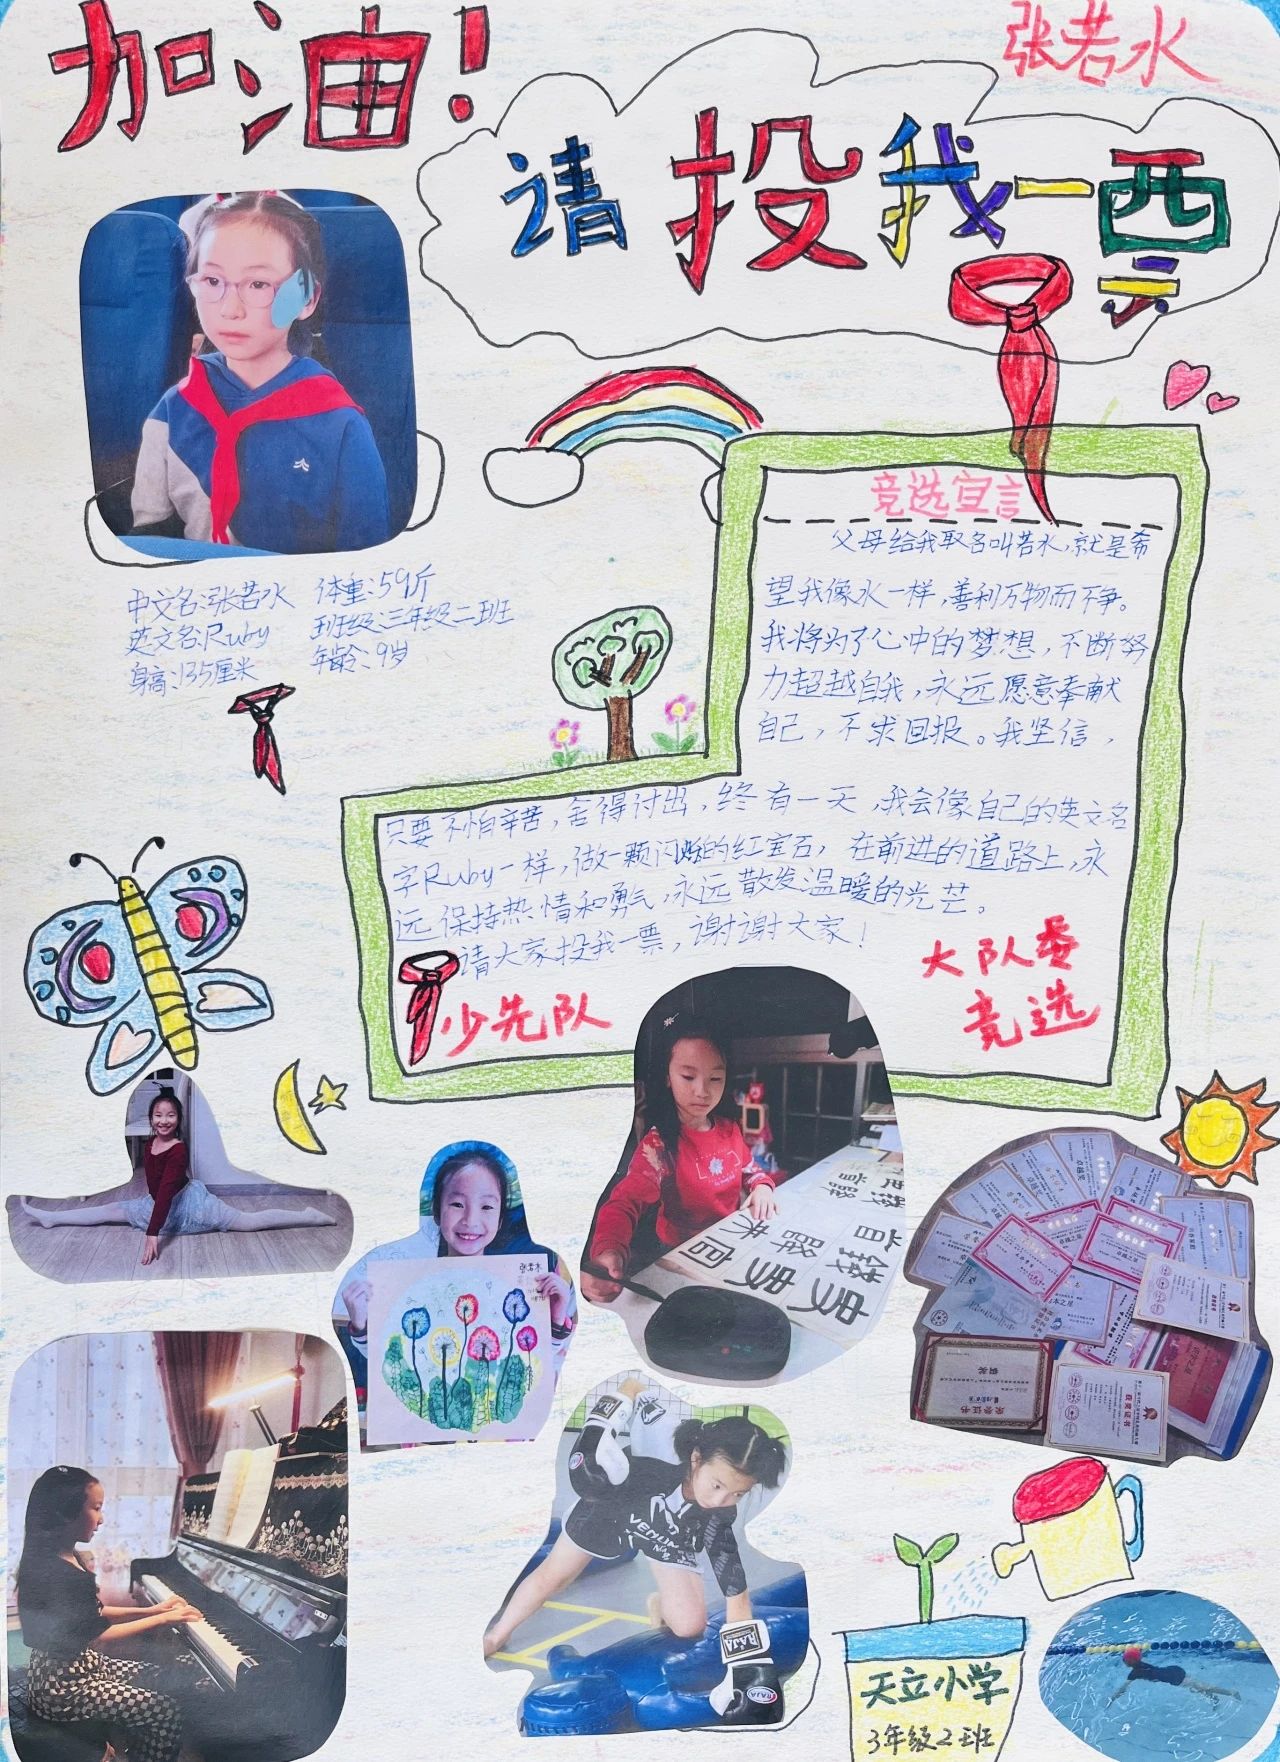 加油！
张若水
请投我一票
中文名：张若水 体重：59斤
英文名：Ruby 班级：三年级二班
身高：135厘米 年龄：9岁
竞选宣言
父母给我取名叫若水，就是希
望我像水一样，善利万物而不争。
我将为了心中的梦想，不断努
力超越自我，永远愿意奉献
自己，不求回报。我坚信，
只要不怕辛苦，舍得付出，终有一天，我会像自己的英文名
字Ruby一样，做一颗闪烁的红宝石，在前进的道路上，永
远保持热情和勇气，永远散发温暖的光芒。
请大家投我一票，谢谢大家！
少先队
大队委
竞选
张若水
VENUM
RAJA
RAJA
荣誉证书
天立小学
3年级2班